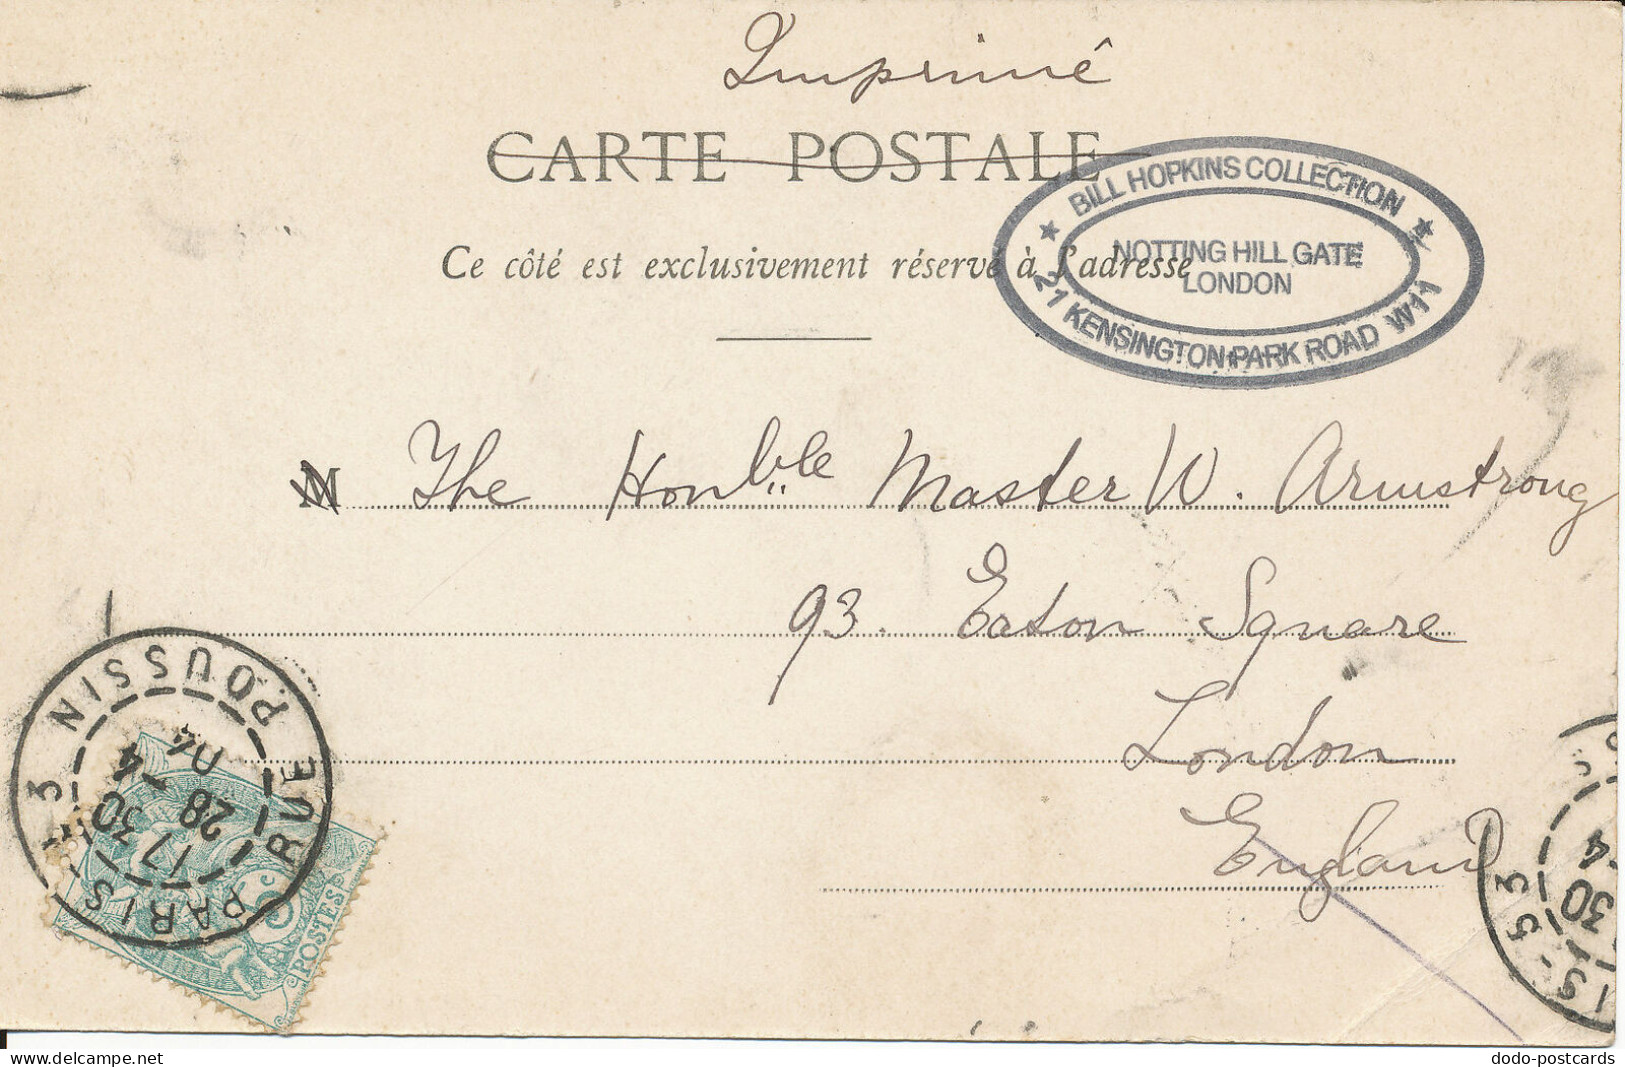 Imprimé
CARTE POSTALE
Ce côté est exclusivement réservé à l'adresse
★ BILL HOPKINS COLLECTION ★
NOTTING HILL GATE
LONDON
21 KENSINGTON PARK ROAD W11
M The Honble Master W. Armstrong
93. Eaton Square
London
England
PARIS-53 RUE POUSSIN
17 30
28 -4
04
5c
POSTES
IS-53
30
4
delcampe.net
dodo-postcards